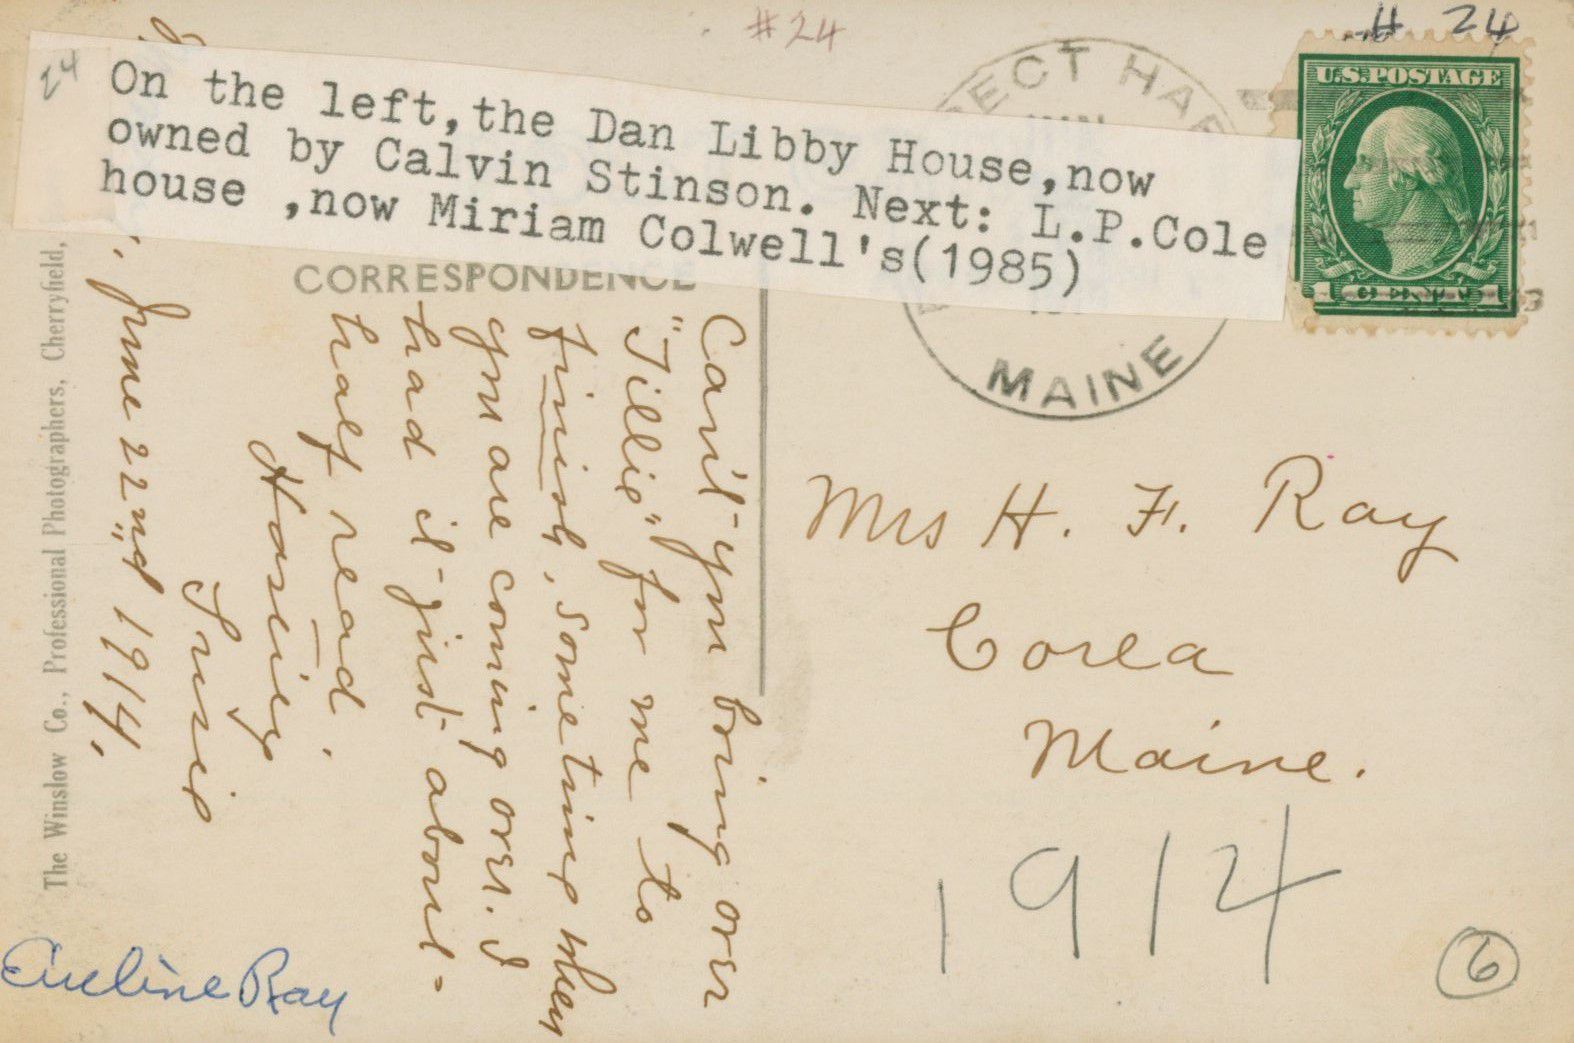 #24
# 24
24
On the left,the Dan Libby House,now
owned by Calvin Stinson. Next: L.P.Cole
house ,now Miriam Colwell's(1985)
U.S.POSTAGE
ECT HAR
MAINE
CORRESPONDENCE
Can't you bring over
"Tillie" for me to
finish, sometime when
you are coming over. I
had it just about
half read.
Hastily
Susie
June 22nd 1914.
Mrs H. F. Ray
Corea
Maine.
1914
6
The Winslow Co., Professional Photographers, Cherryfield,
Eveline Ray